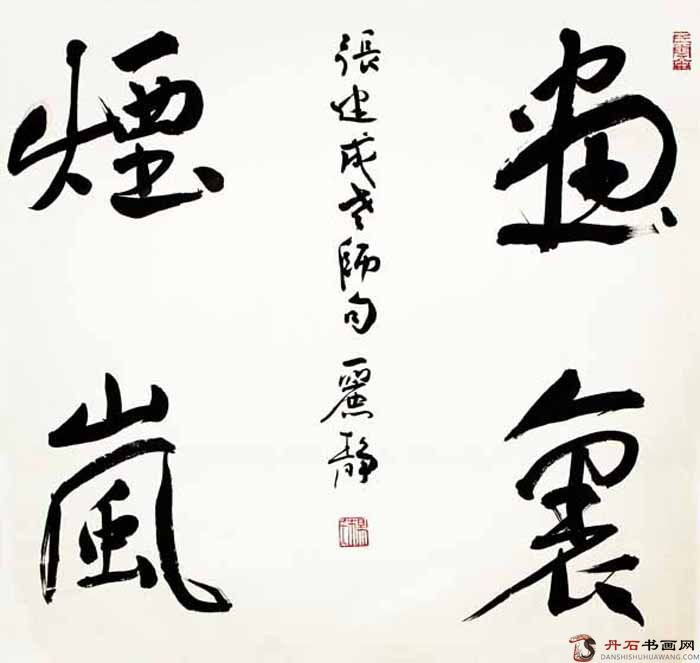 畫裏
張建成老師句 麗静
煙嵐
丹石书画网
DANSHISHUHUAWANG.COM